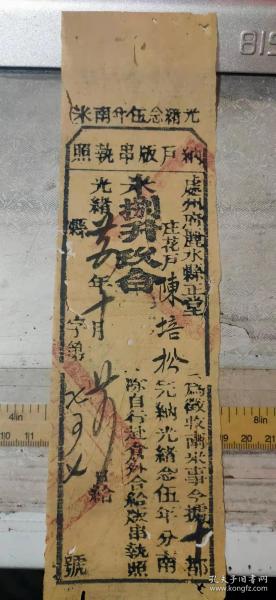 光緒念伍年分南米
納戶版串執照
處州府麗水縣正堂 為徵收南米事今據 十 都
莊花戶陳培松 完納光緒念伍年分南
米捌升玖合 除自行赴倉外合給版串執照
光緒 年十月 日給
縣 字第 號
孔夫子旧书网